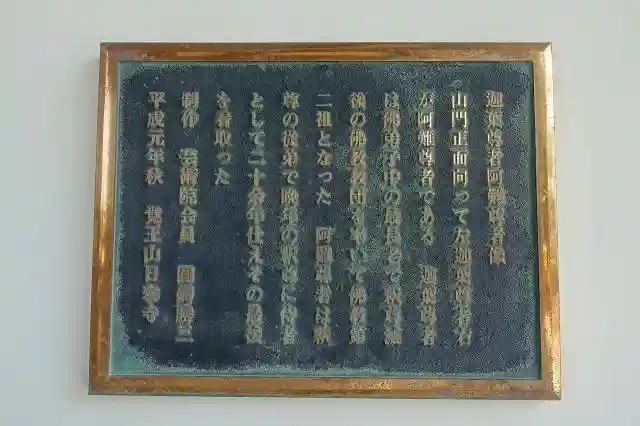 迦葉尊者阿難尊者像
山門正面向って左迦葉尊者右
が阿難尊者である 迦葉尊者
は佛弟子中の最長老で釈尊滅
後の佛教教団を率いて佛教第
二祖となった 阿難尊者は釈
尊の従弟で晩年の釈尊に侍者
として二十余年仕えその最後
を看取った
制作 芸術院会員 圓鍔勝三
平成元年秋 覚王山日泰寺